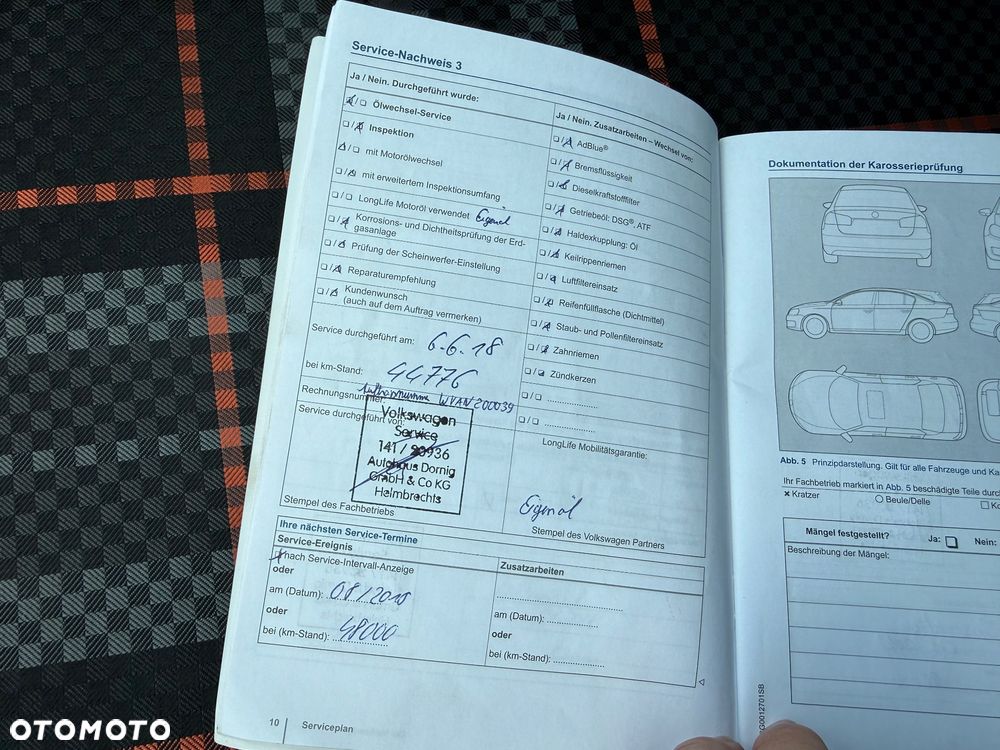 Service-Nachweis 3
Ja / Nein. Durchgeführt wurde:
☒/☐ Ölwechsel-Service
☐/☒ Inspektion
☒/☐ mit Motorölwechsel
☐/☒ mit erweitertem Inspektionsumfang
☐/☐ LongLife Motoröl verwendet Eigenöl
☐/☒ Korrosions- und Dichtheitsprüfung der Erd-
gasanlage
☐/☒ Prüfung der Scheinwerfer-Einstellung
☐/☒ Reparaturempfehlung
☐/☒ Kundenwunsch
(auch auf dem Auftrag vermerken)
Service durchgeführt am: 6.6.18
bei km-Stand: 44776
Rechnungsnummer: WVAN200039
Service durchgeführt von:
Volkswagen
Service
141 / 20936
Autohaus Dornig
GmbH & Co KG
Helmbrechts
Stempel des Fachbetriebs
Ja / Nein. Zusatzarbeiten – Wechsel von:
☐/☒ AdBlue®
☐/☒ Bremsflüssigkeit
☐/☒ Dieselkraftstofffilter
☐/☒ Getriebeöl: DSG®, ATF
☐/☒ Haldexkupplung: Öl
☐/☒ Keilrippenriemen
☐/☒ Luftfiltereinsatz
☐/☒ Reifenfüllflasche (Dichtmittel)
☐/☒ Staub- und Pollenfiltereinsatz
☐/☒ Zahnriemen
☐/☒ Zündkerzen
☐/☐ ....................
☐/☐ ....................
LongLife Mobilitätsgarantie:
Eigenöl
Stempel des Volkswagen Partners
Ihre nächsten Service-Termine
Service-Ereignis
nach Service-Intervall-Anzeige
oder
am (Datum): 08/2018
oder
bei (km-Stand): 48000
Zusatzarbeiten
am (Datum): ....................
oder
bei (km-Stand): ....................
10 Serviceplan
Dokumentation der Karosserieprüfung
Abb. 5 Prinzipdarstellung. Gilt für alle Fahrzeuge und
Ihr Fachbetrieb markiert in Abb. 5 beschädigte Teile
× Kratzer ○ Beule/Delle
Mängel festgestellt? Ja: ☐ Nein:
Beschreibung der Mängel:
OTOMOTO